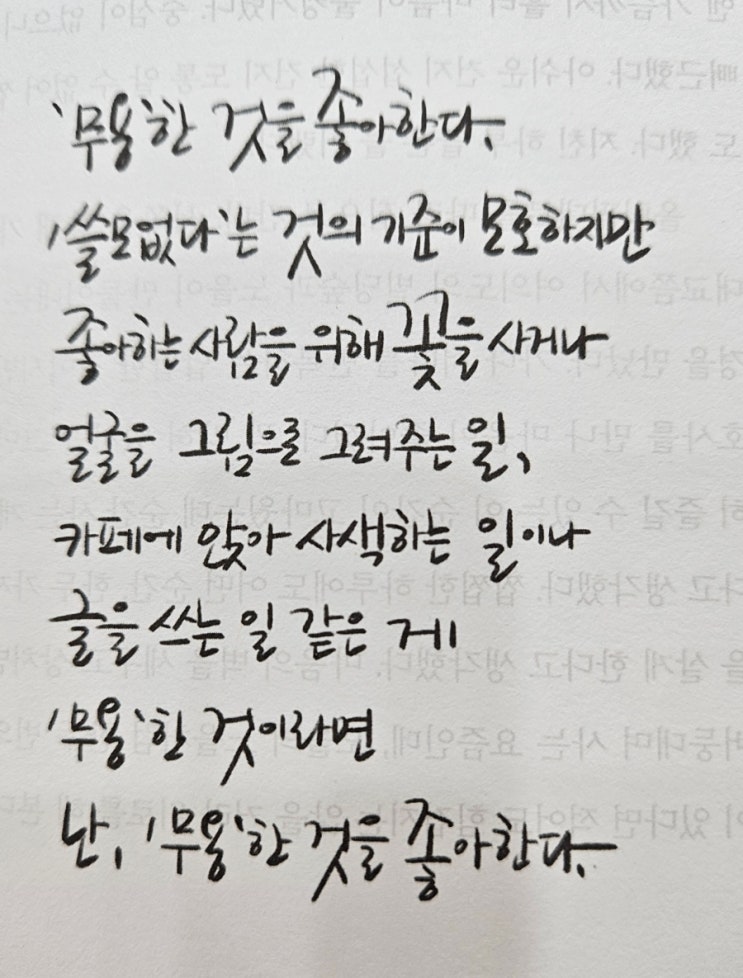 '무용'한 것을 좋아한다.
'쓸모없다'는 것의 기준이 모호하지만
좋아하는 사람을 위해 꽃을 사거나
얼굴을 그림으로 그려주는 일,
카페에 앉아 사색하는 일이나
글을 쓰는 일 같은 게
'무용'한 것이라면
난, '무용'한 것을 좋아한다.